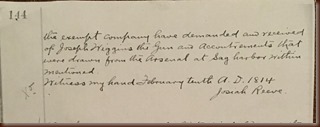 144
the exempt company have demanded and received
of Joseph Wiggins the Gun and Accoutrements that
were drawn from the Arsenal at Sag harbor within
mentioned
Witness my hand February tenth A.D. 1814
Josiah Reeve.